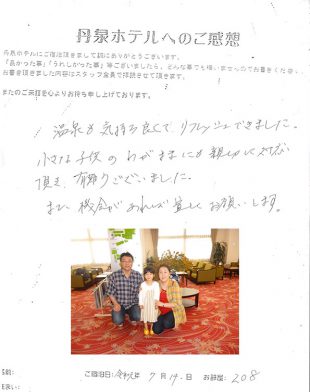 丹泉ホテルへのご感想
丹泉ホテルにご宿泊頂きまして誠にありがとうございます。
「良かった事」「うれしかった事」等ございましたら、どんな事でも構いませんのでお書きください。
お書き頂きました内容はスタッフ全員で拝読させて頂きます。
またのご来館を心よりお待ち申し上げております。
温泉も気持ち良くて、リフレッシュできました。
小さな子供のわがままにも親切に対応
頂き、有難うございました。
また機会があれば宜しくお願いします。
ご宿泊日:令和元年 7月14.日 お部屋: 208